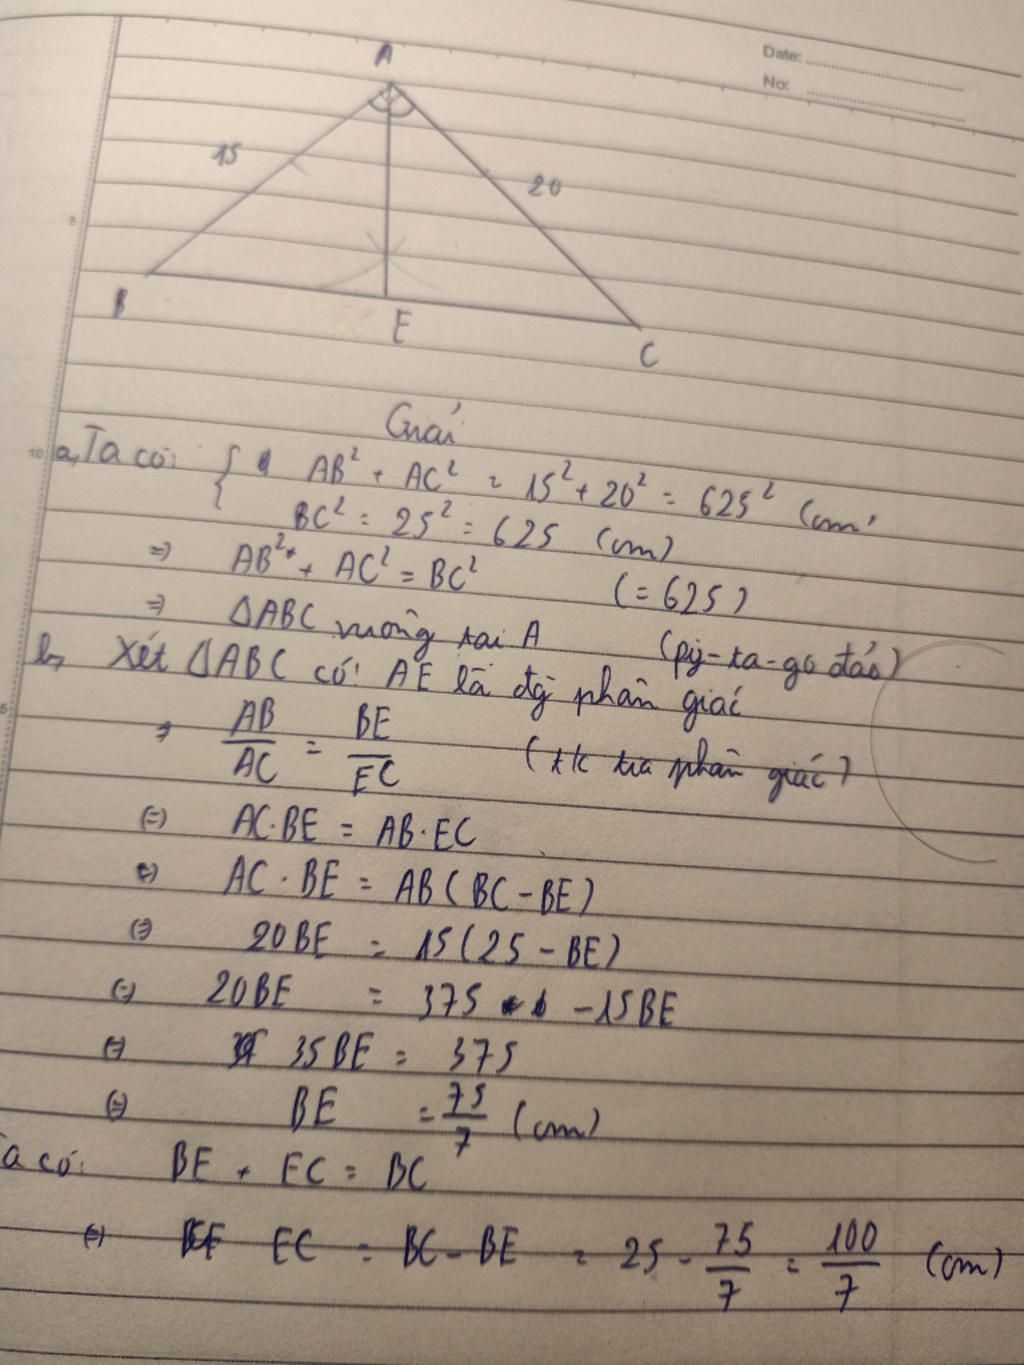 Date:
No:
A
15
20
B
E
C
Giải
a, Ta có: { AB² + AC² = 15² + 20² = 625² (cm)
BC² = 25² = 625 (cm)
=> AB² + AC² = BC² (= 625)
=> ΔABC vuông tại A (py-ta-go đảo)
b, Xét ΔABC có: AE là đg phân giác
=> AB/AC = BE/EC (t/c tia phân giác)
(=) AC.BE = AB.EC
(=) AC . BE = AB (BC - BE)
(=) 20BE = 15(25 - BE)
(=) 20BE = 375 - 15BE
(=) 35BE = 375
(=) BE = 75/7 (cm)
Ta có: BE + EC = BC
(=) EC = BC - BE = 25 - 75/7 = 100/7 (cm)